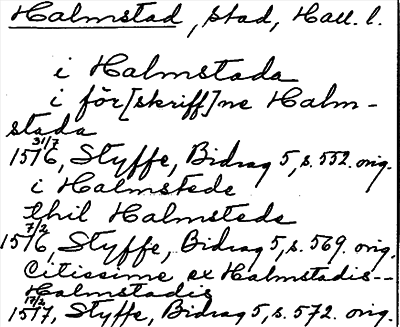 Halmstad, stad, Hall. l.
i Halmstada
i för[skriff]ne Halm-
stada
31/7
1516, Styffe, Bidrag 5, s. 552. orig.
i Halmstede
thil Halmsteds
7/2
1516, Styffe, Bidrag 5, s. 569. orig.
Citissime ex Halmstadis--
Halmstadis
17/2
1517, Styffe, Bidrag 5, s. 572. orig.